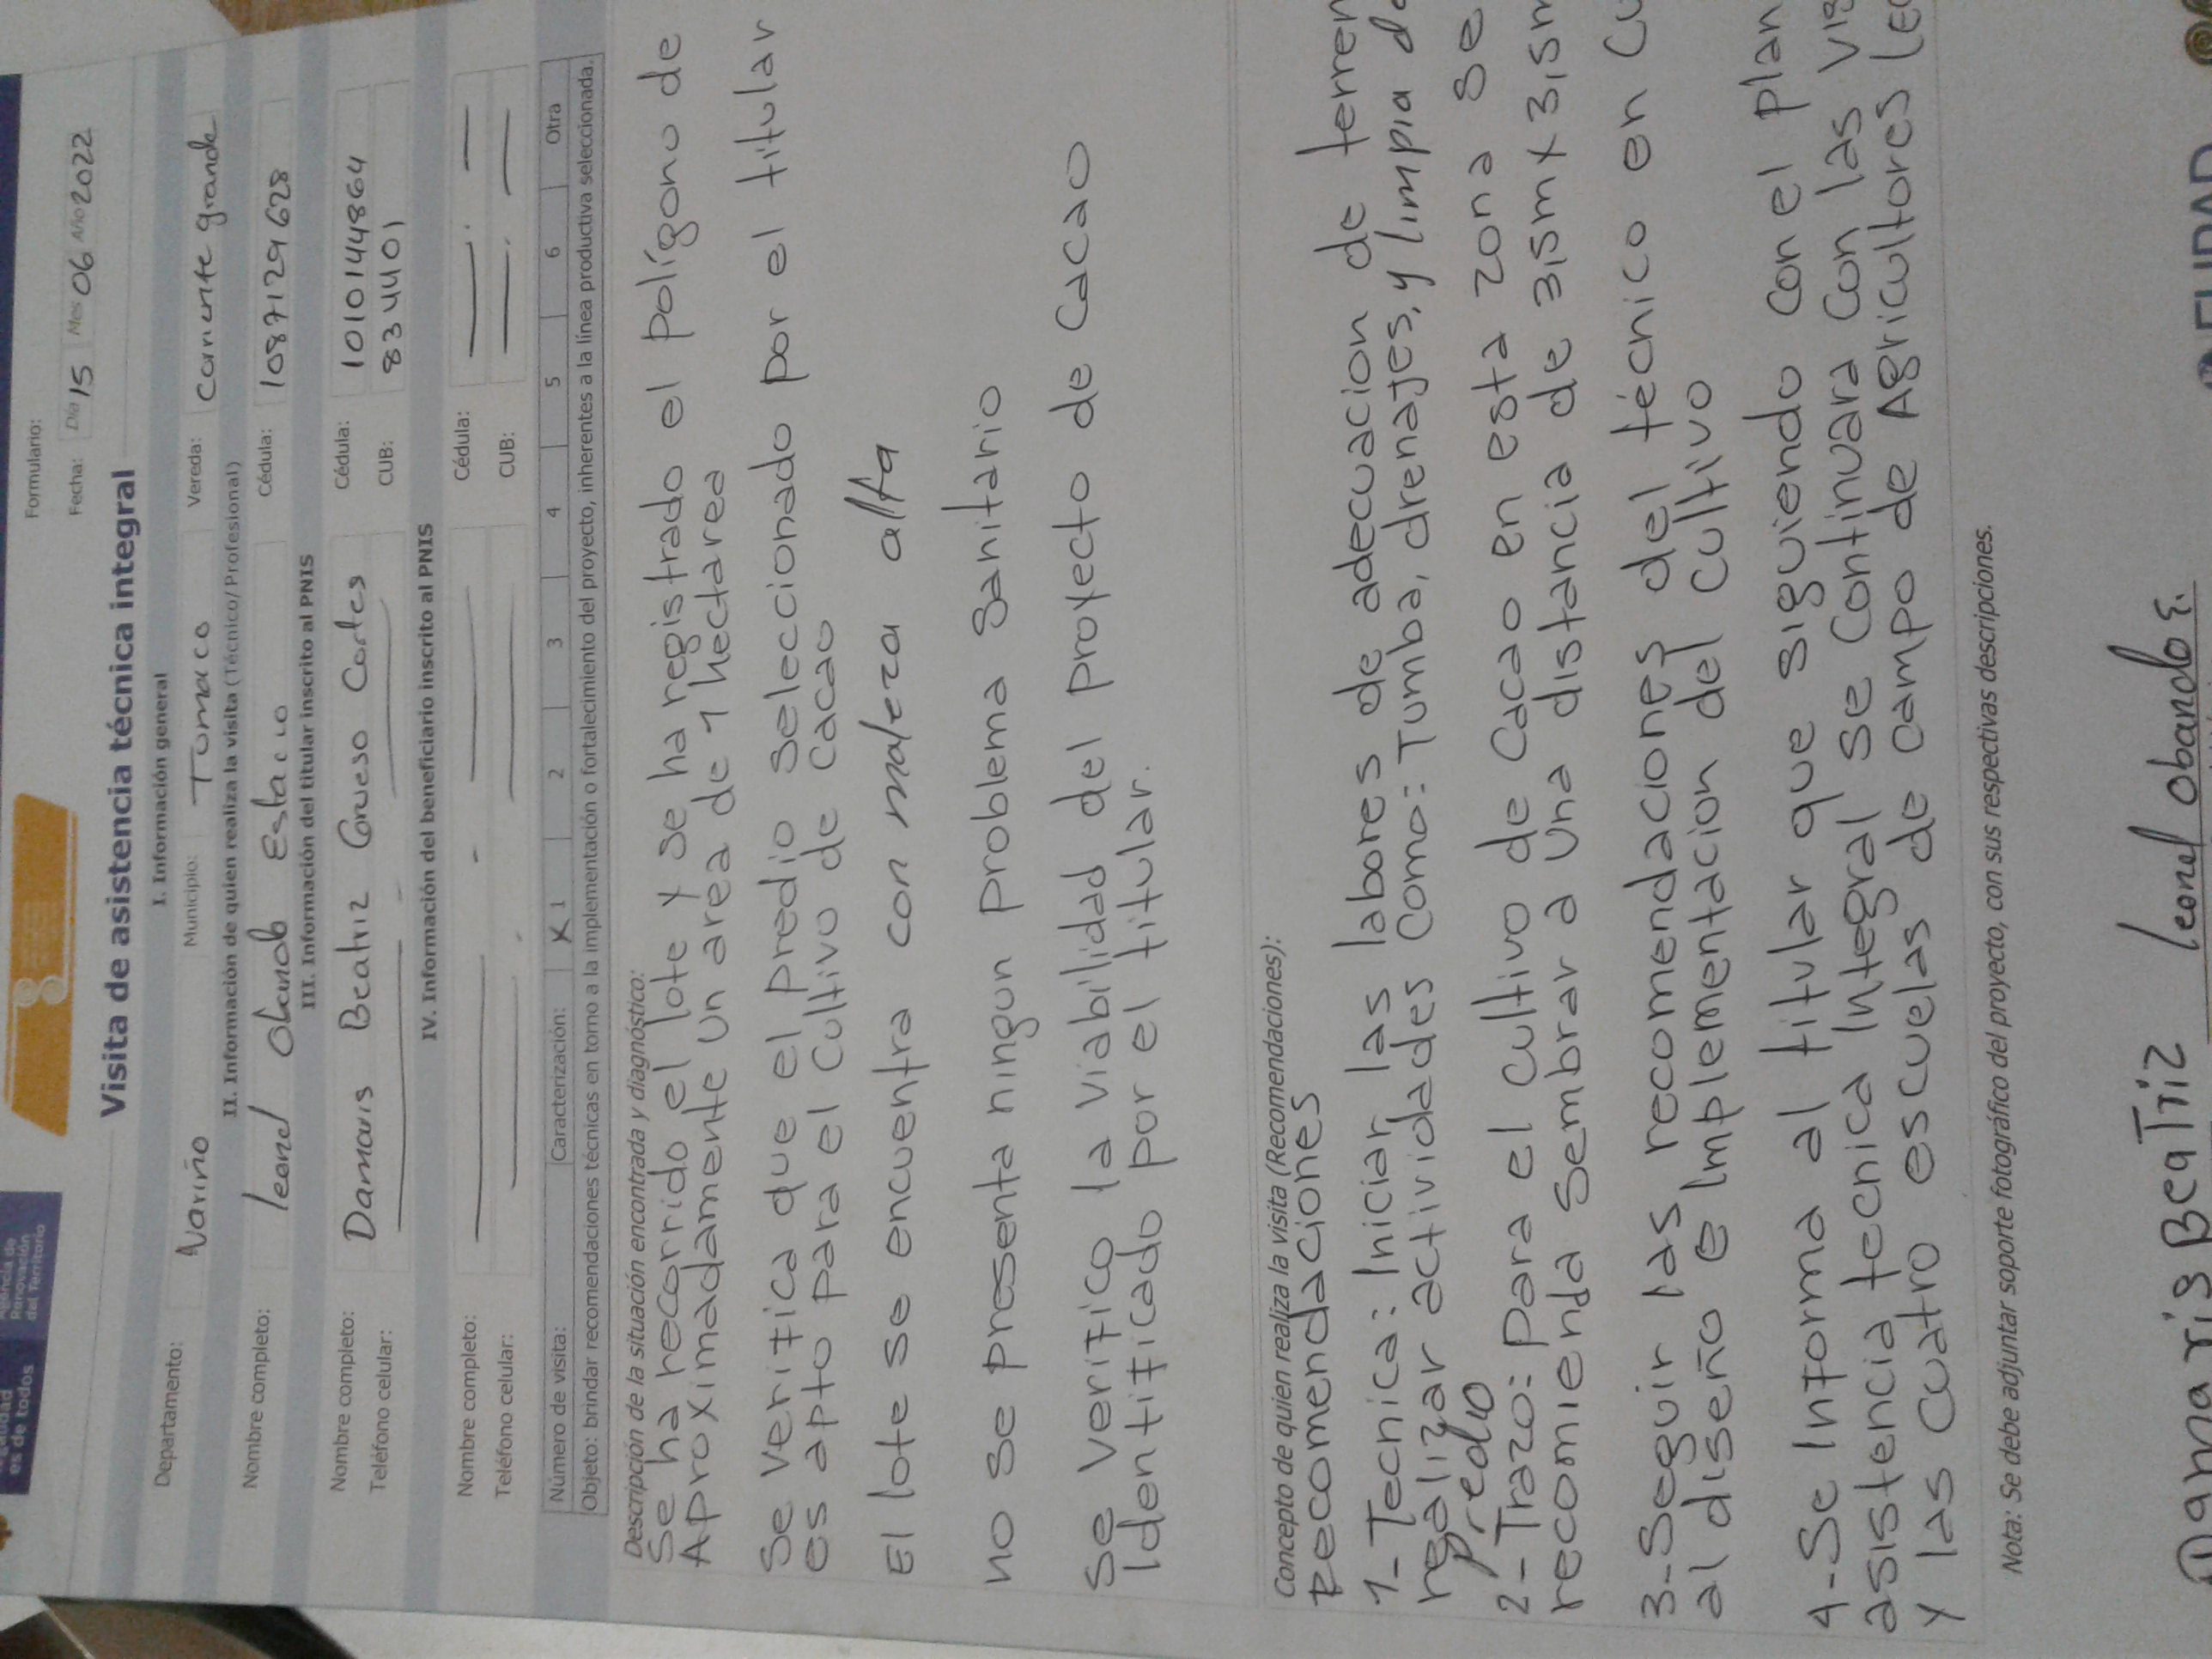 es de todos
Agencia de
Renovación
del Territorio
Formulario:
Fecha: Día 15 Mes 06 Año 2022
Visita de asistencia técnica integral
I. Información general
Departamento: Nariño Municipio: Tumaco Vereda: Corriente grande
II. Información de quien realiza la visita (Técnico/Profesional)
Nombre completo: leonel Obando Estacio Cédula: 1087129628
III. Información del titular inscrito al PNIS
Nombre completo: Damaris Beatriz Grueso Cortes Cédula: 1010144864
Teléfono celular: CUB: 834401
IV. Información del beneficiario inscrito al PNIS
Nombre completo: Cédula:
Teléfono celular: CUB:
Número de visita: Caracterización: X 1 2 3 4 5 6 Otra
Objeto: brindar recomendaciones técnicas en torno a la implementación o fortalecimiento del proyecto, inherentes a la línea productiva seleccionada.
Descripción de la situación encontrada y diagnóstico:
Se ha recorrido el lote y se ha registrado el polígono de
Aproximadamente un area de 1 hectarea
Se verifica que el predio seleccionado por el titular
es apto para el cultivo de cacao
El lote se encuentra con maleza alta
no se presenta ningun problema sanitario
Se verifico la viabilidad del proyecto de cacao
identificado por el titular.
Concepto de quien realiza la visita (Recomendaciones):
Recomendaciones
1- Tecnica: Iniciar las labores de adecuacion de terren
realizar actividades como: Tumba, drenajes, y limpia d
predio
2- Trazo: Para el cultivo de Cacao en esta zona se
recomienda sembrar a una distancia de 3,5m x 3,5m
3- Seguir las recomendaciones del técnico en cu
al diseño e implementacion del cultivo
4- Se informa al titular que siguiendo con el plan
asistencia tecnica integral se continuara con las vis
y las cuatro escuelas de campo de Agricultores
Nota: Se debe adjuntar soporte fotográfico del proyecto, con sus respectivas descripciones.
Damaris BeaTriz leonel obando E.